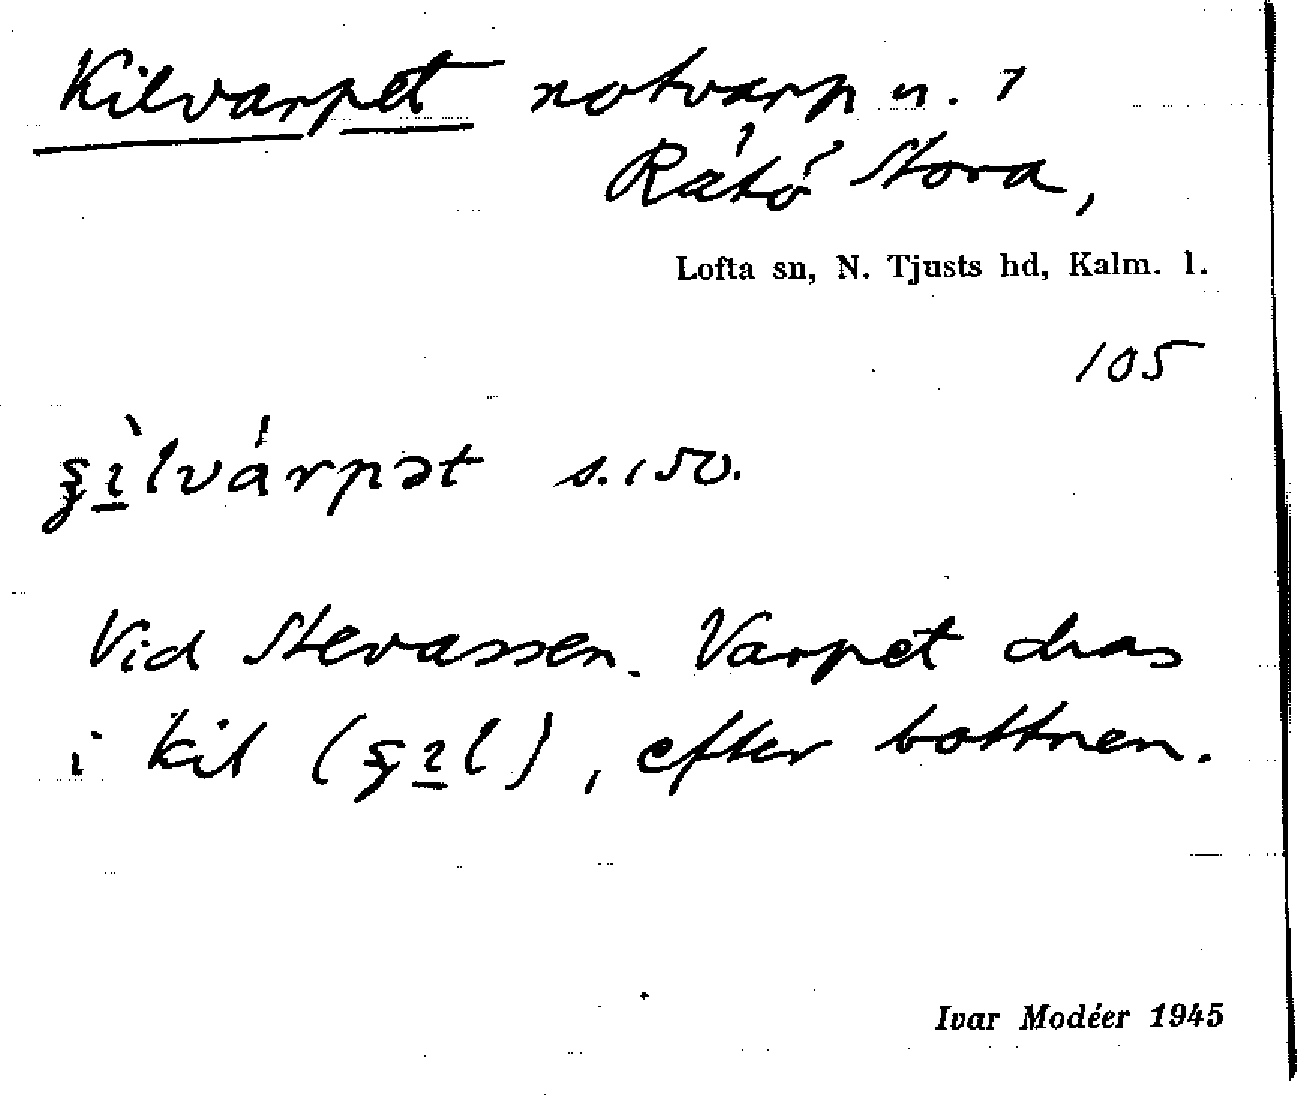 Kilvarpet notvarp n. 1
Råtö Stora,
Lofta sn, N. Tjusts hd, Kalm. l.
105
s. 150.
Vid Stevassen. Varpet dras
i kil (), efter bottnen.
Ivar Modéer 1945